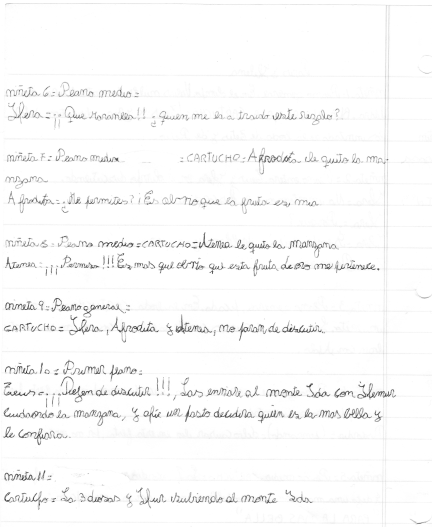 viñeta 6= Plano medio=
Hera=¡¡ Que maravilla!! ¿quien me la a traido este regalo?
viñeta 7= Plano medio =CARTUCHO= Afrodita le quito la ma-
nzana
Afrodita=¿Me permites? ¡Es obvio que la fruta es mia
viñeta 8= Plano medio=CARTUCHO=Atenea le quito la manzana
Atenea=¡¡¡Permiso!!!Es mas que obvio que esta fruta de oro me pertenece.
viñeta 9= Plano general=
CARTUCHO= Hera, Afrodita y Atenea, no paran de discutir.
viñeta 10= Primer plano=
Zeus=¡¡¡Dejen de discutir!!!, Las enviare al monte Ida con
cuidando la manzana, y alli un pasto decidira quien es la mas bella y
le confiara.
viñeta 11=
Cartucho= La 3 diosas y subiendo al monte Ida